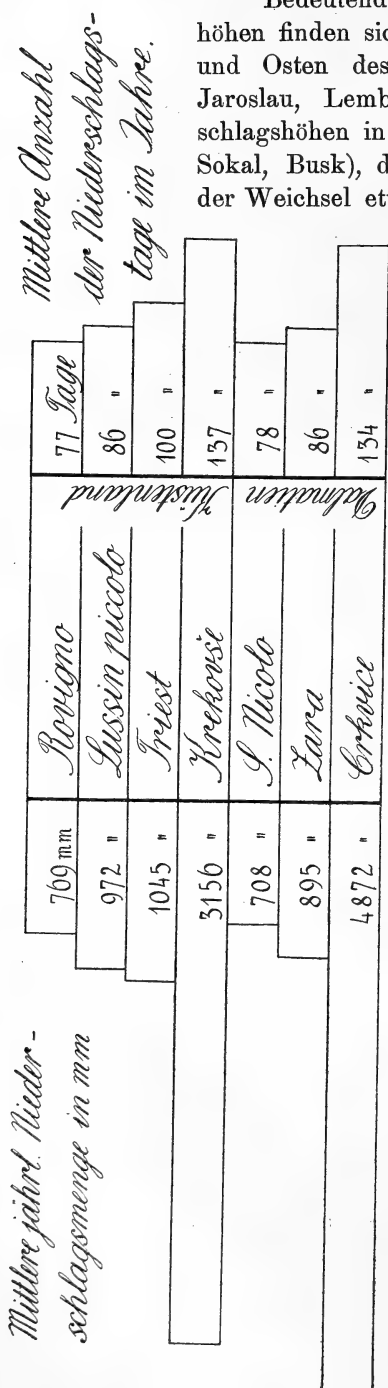 Bedeutend
höhen finden sic
und Osten des
Jaroslau, Lemb
schlagshöhen in
Sokal, Busk), d
der Weichsel et
Mittlere Anzahl
der Niederschlags-
tage im Jahre.
Mittlere jährl. Nieder-
schlagsmenge in mm
769 mm Rovigno 77 Tage
972 " Lussin piccolo 86 "
1045 " Triest 100 "
3156 " Krekovše 137 "
Küstenland
708 " S. Nicolo 78 "
895 " Zara 86 "
4872 " Crkvice 134 "
Dalmatien